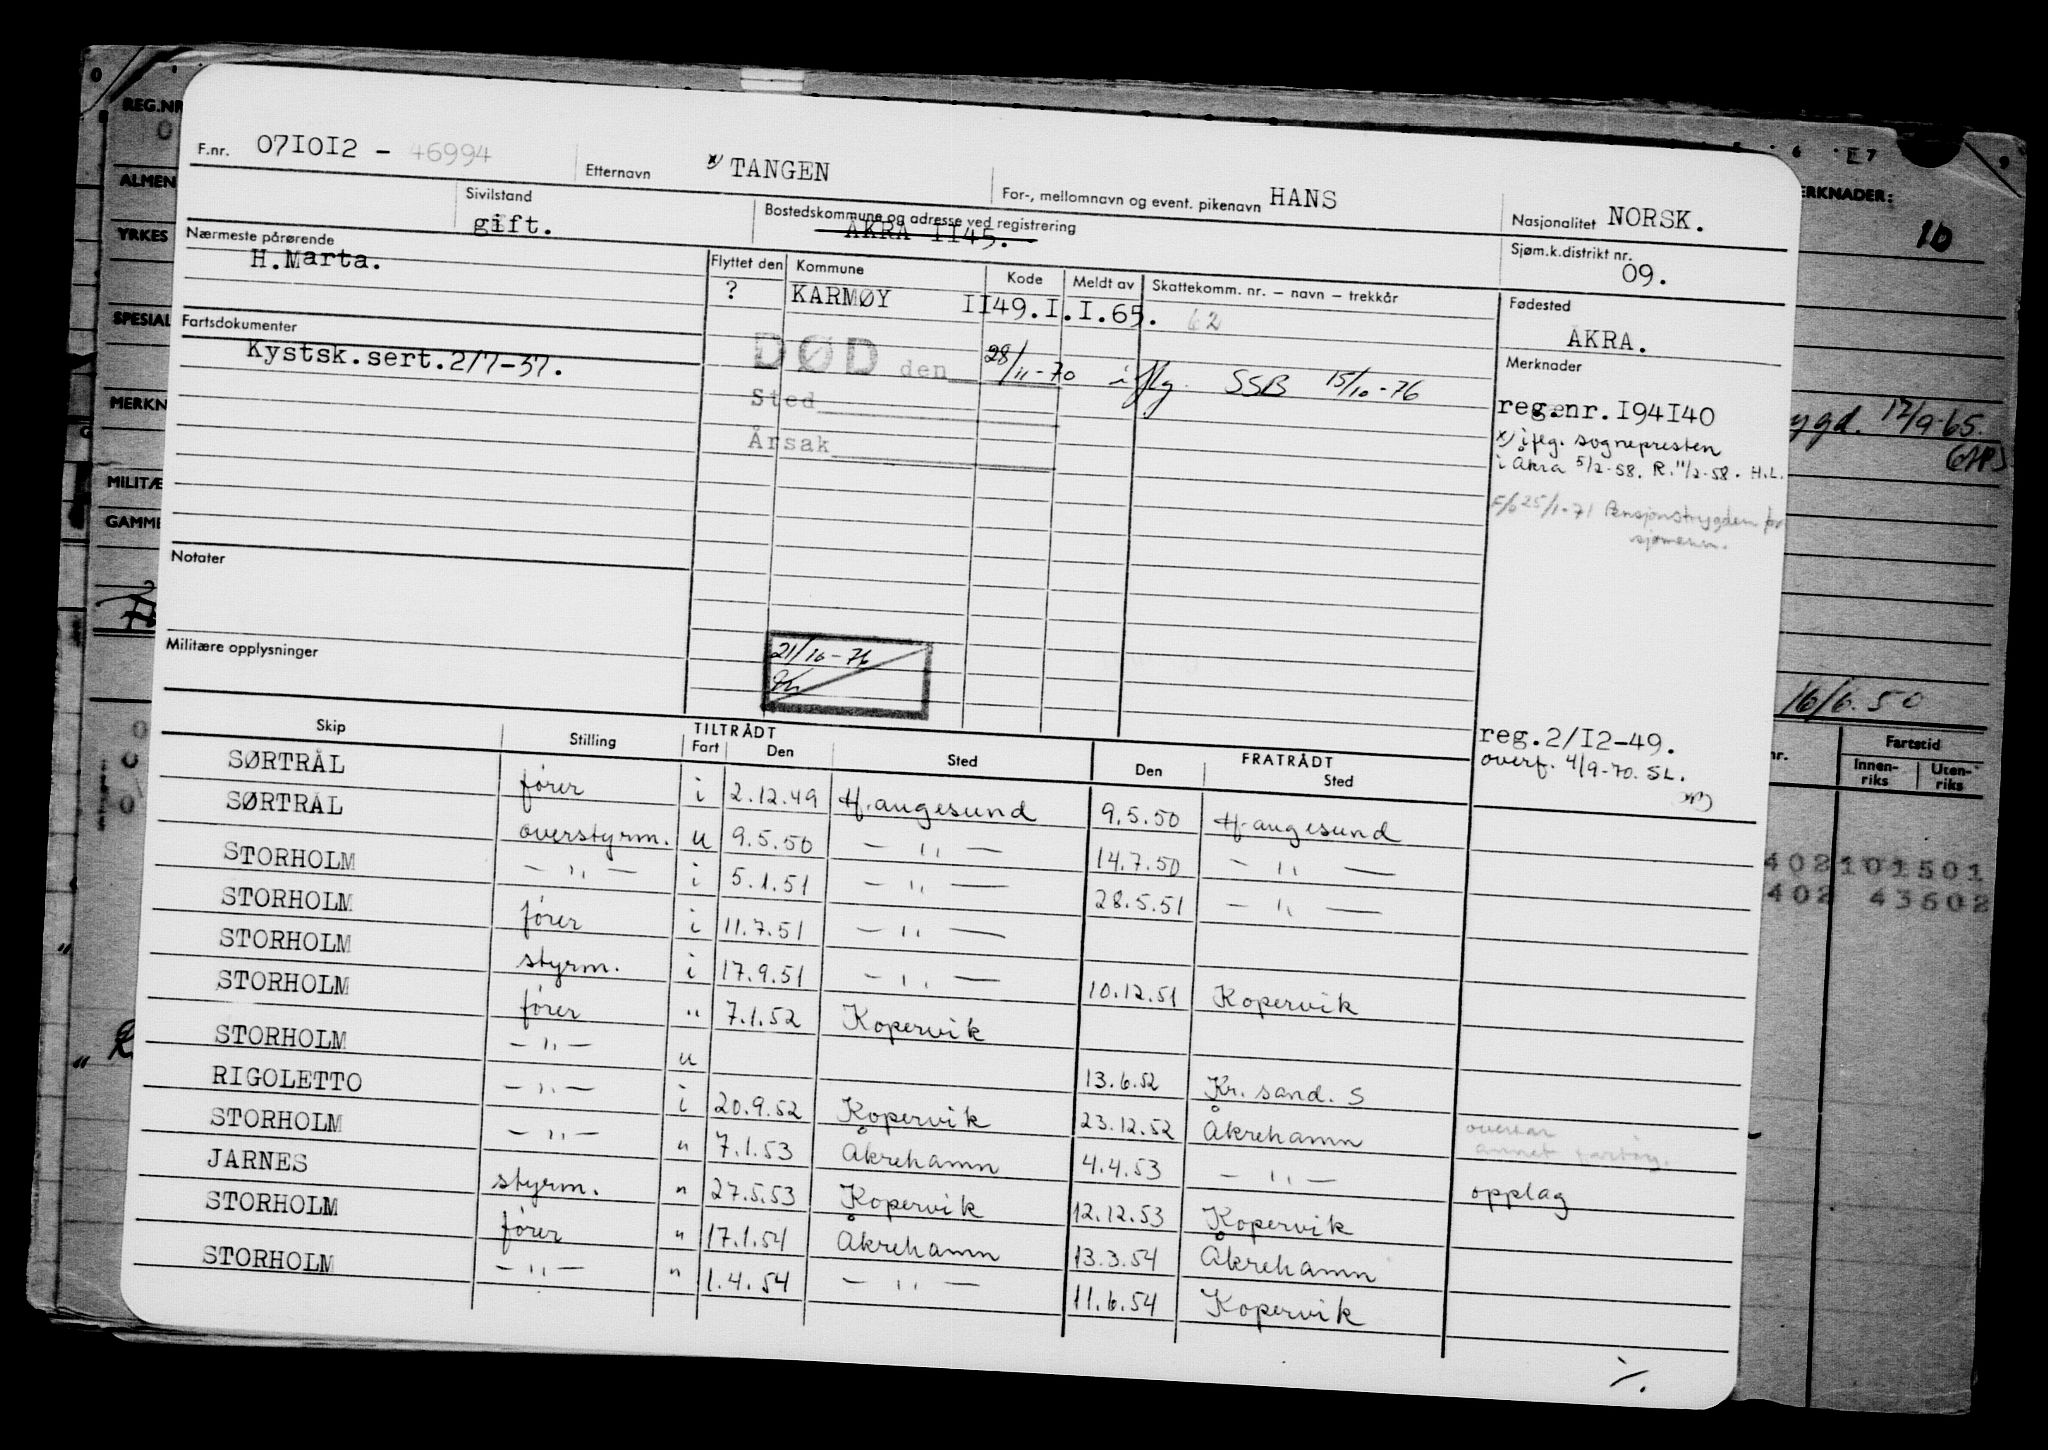 REG.NR
ALMEN
YRKES
SPESIAL
MERKN
MILITÆ
GAMME
F.nr. 071012 - 46994
Etternavn x) TANGEN
For-, mellomnavn og event. pikenavn HANS
Nasjonalitet NORSK.
Sivilstand gift.
Bostedskommune og adresse ved registrering
ÅKRA 1145.
Sjøm.k.distrikt nr. 09.
Nærmeste pårørende
H.Marta.
Flyttet den Kommune Kode Meldt av Skattekomm. nr. – navn – trekkår
? KARMØY 1149.1.1.65. 62
Fødested
ÅKRA.
Fartsdokumenter
Kystsk.sert.2/7-37.
DØD den 28/11-70 iflg. SSB 15/10-76
Sted
Årsak
Merknader
reg.nr.194140
x) ifлg. sognepresten
i Åkra 5/2-58. R. 11/2-58. H.L.
F/6 25/1-71 Pensjonstrygden for
sjømenn.
Notater
Militære opplysninger
21/10-76
reg.2/12-49.
overf. 4/9-70. SL.
Skip Stilling TILTRÅDT Fart Den Sted FRATRÅDT Den Sted
SØRTRÅL fører i 2.12.49 Haugesund 9.5.50 Haugesund
SØRTRÅL overstyrm. u 9.5.50 — " — 14.7.50 — " —
STORHOLM — " — i 5.1.51 — " — 28.5.51 — " —
STORHOLM fører i 11.7.51 — " —
STORHOLM styrm. i 17.9.51 — " — 10.12.51 Kopervik
STORHOLM fører " 7.1.52 Kopervik
STORHOLM — " — u 13.6.52 Kr. sand. S
RIGOLETTO — " — i 20.9.52 Kopervik 23.12.52 Åkrehamn overtar
annet fartøy.
STORHOLM — " — " 7.1.53 Åkrehamn 4.4.53 — " — opplag
JARNES styrm. " 27.5.53 Kopervik 12.12.53 Kopervik
STORHOLM fører " 17.1.54 Åkrehamn 13.3.54 Åkrehamn
STORHOLM — " — " 1.4.54 — " — 11.6.54 Kopervik
./.
ERKNADER:
10
ygd. 17/9-65.
16/6.50
nr. Fartstid
Innen-
riks
Uten-
riks
402101501
402 43602